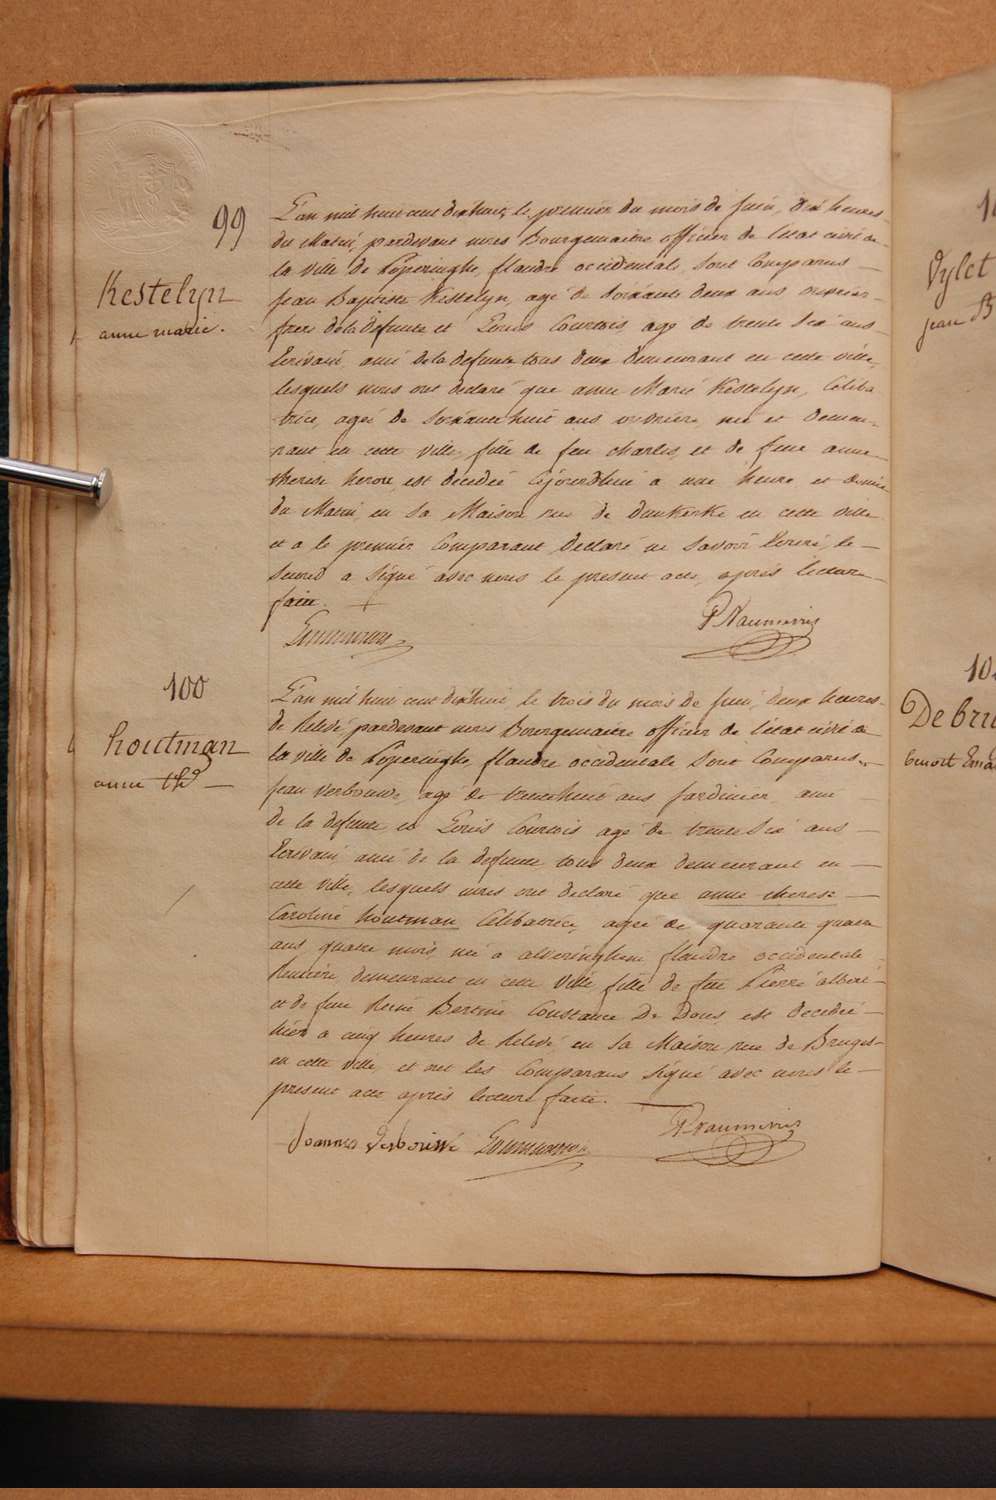 99
Kestelyn
anne marie.
L'an mil huit cent dixhuit, le premier du mois de Juin, dix heures
du Matin, pardevant nous Bourgemaitre officier de l'etat civil de
la ville de Poperinghe, flandre occidentale, sont Comparus
Jean Baptiste Kestelyn, agé de soixante deux ans
frere de la defunte et Louis Courtois, agé de trente six ans
Ecrivain, ami de la defunte tous deux demeurant en cette ville,
lesquels nous ont declaré que anne Marie Kestelyn, Celiba
trice, agée de soixante huit ans ouvriere, née et demeu-
rant en cette ville, fille de feu charles, et de feue anne
therese, est decedée cejourd'hui a une heure et demie
du Matin, en sa Maison rue de dunkerke en cette ville
et a le premier Comparant declaré ne savoir Ecrire, le
second a signé avec nous le present acte, après lecture
faite.
100
houtman
anne thé
L'an mil huit cent dixhuit, le trois du mois de Juin, deux heures
de Relevé, pardevant nous Bourgemaitre officier de l'etat civil de
la ville de Poperinghe, flandre occidentale sont Comparus
Jean Verbouwe, agé de trente huit ans Jardinier, ami
de la defunte et Louis Courtois agé de trente six ans
Ecrivain ami de la defunte, tous deux demeurant en
cette ville, lesquels nous ont declaré que anne therese
Caroline houtman Celibatrice, agée de quarante quatre
ans quatre mois, née a alveringhem flandre occidentale
Rentiere, demeurant en cette Ville fille de feu Pierre albert
et de feue Reine Bertine Constance De Dous est decedée
hier a cinq heures de Relevé, en sa Maison rue de Bruges
en cette ville, et ont les Comparans signé avec nous le
present acte après lecture faite.
Joannes
Vylet
jean B
De bru
benoit